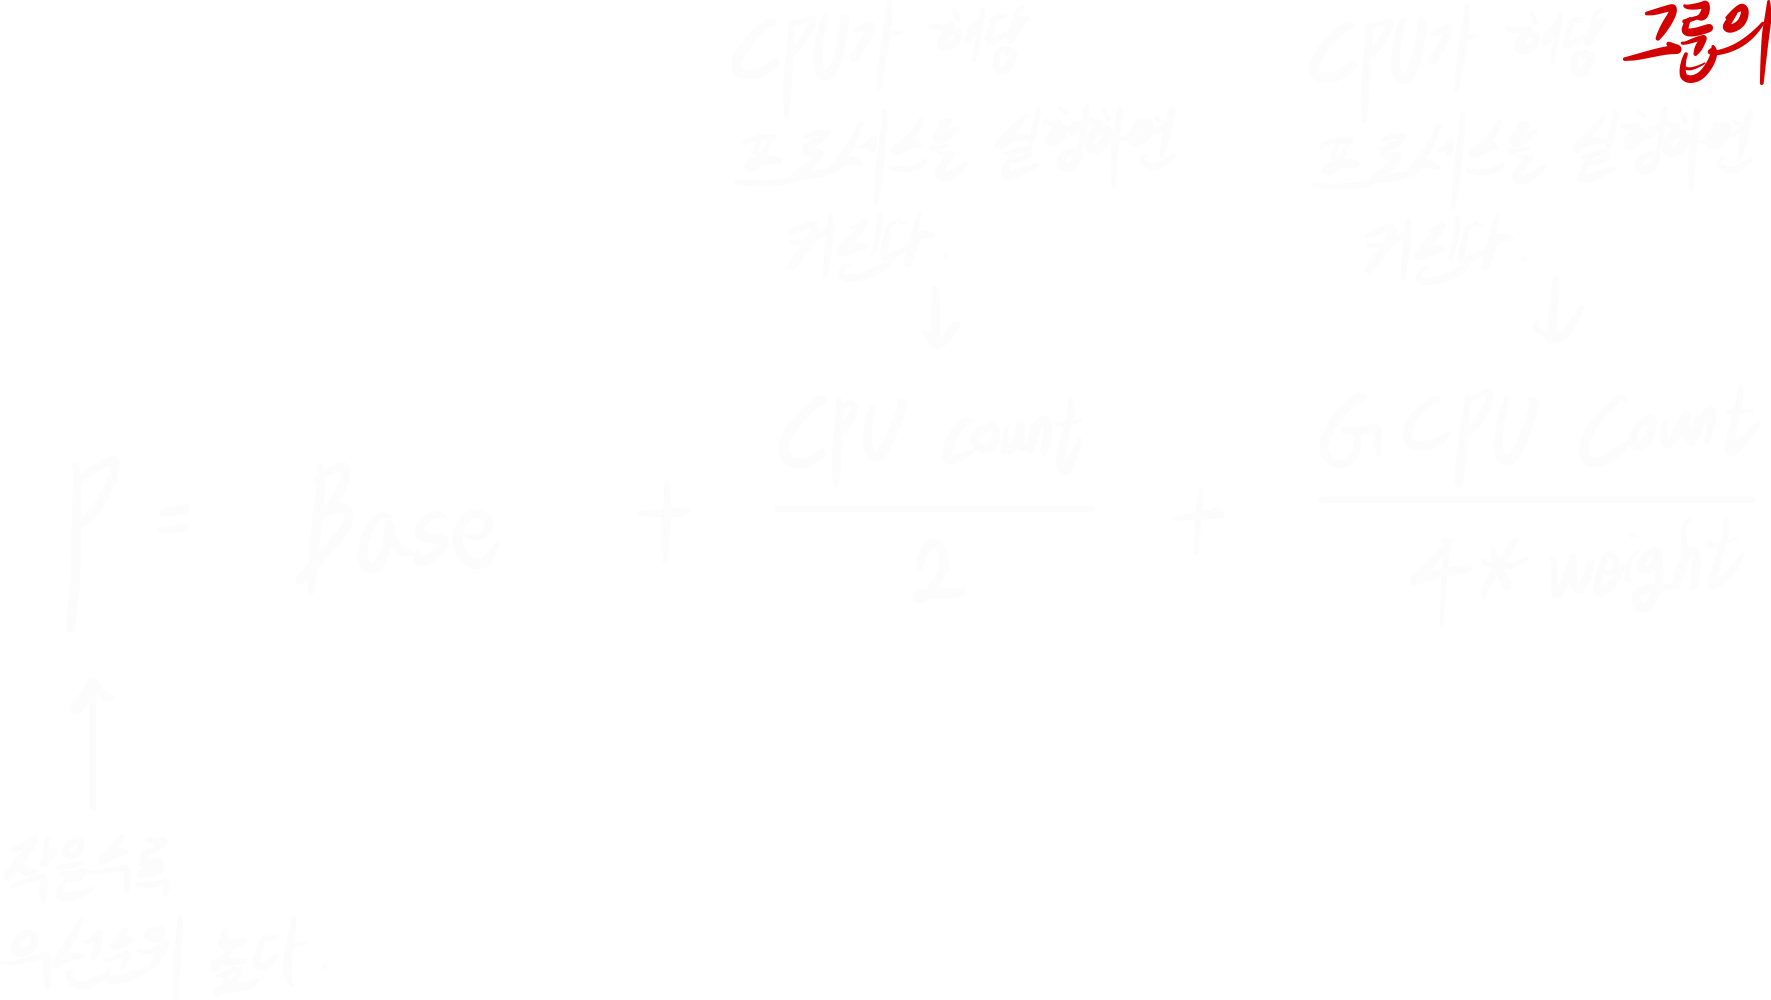 CPU가 해당
프로세스를 실행하면
커진다.
↓
CPU가 해당 그룹의
프로세스를 실행하면
커진다.
↓
P = Base + CPU count / 2 + GCPU Count / 4 * weight
↑
작을수록
우선순위 높다.